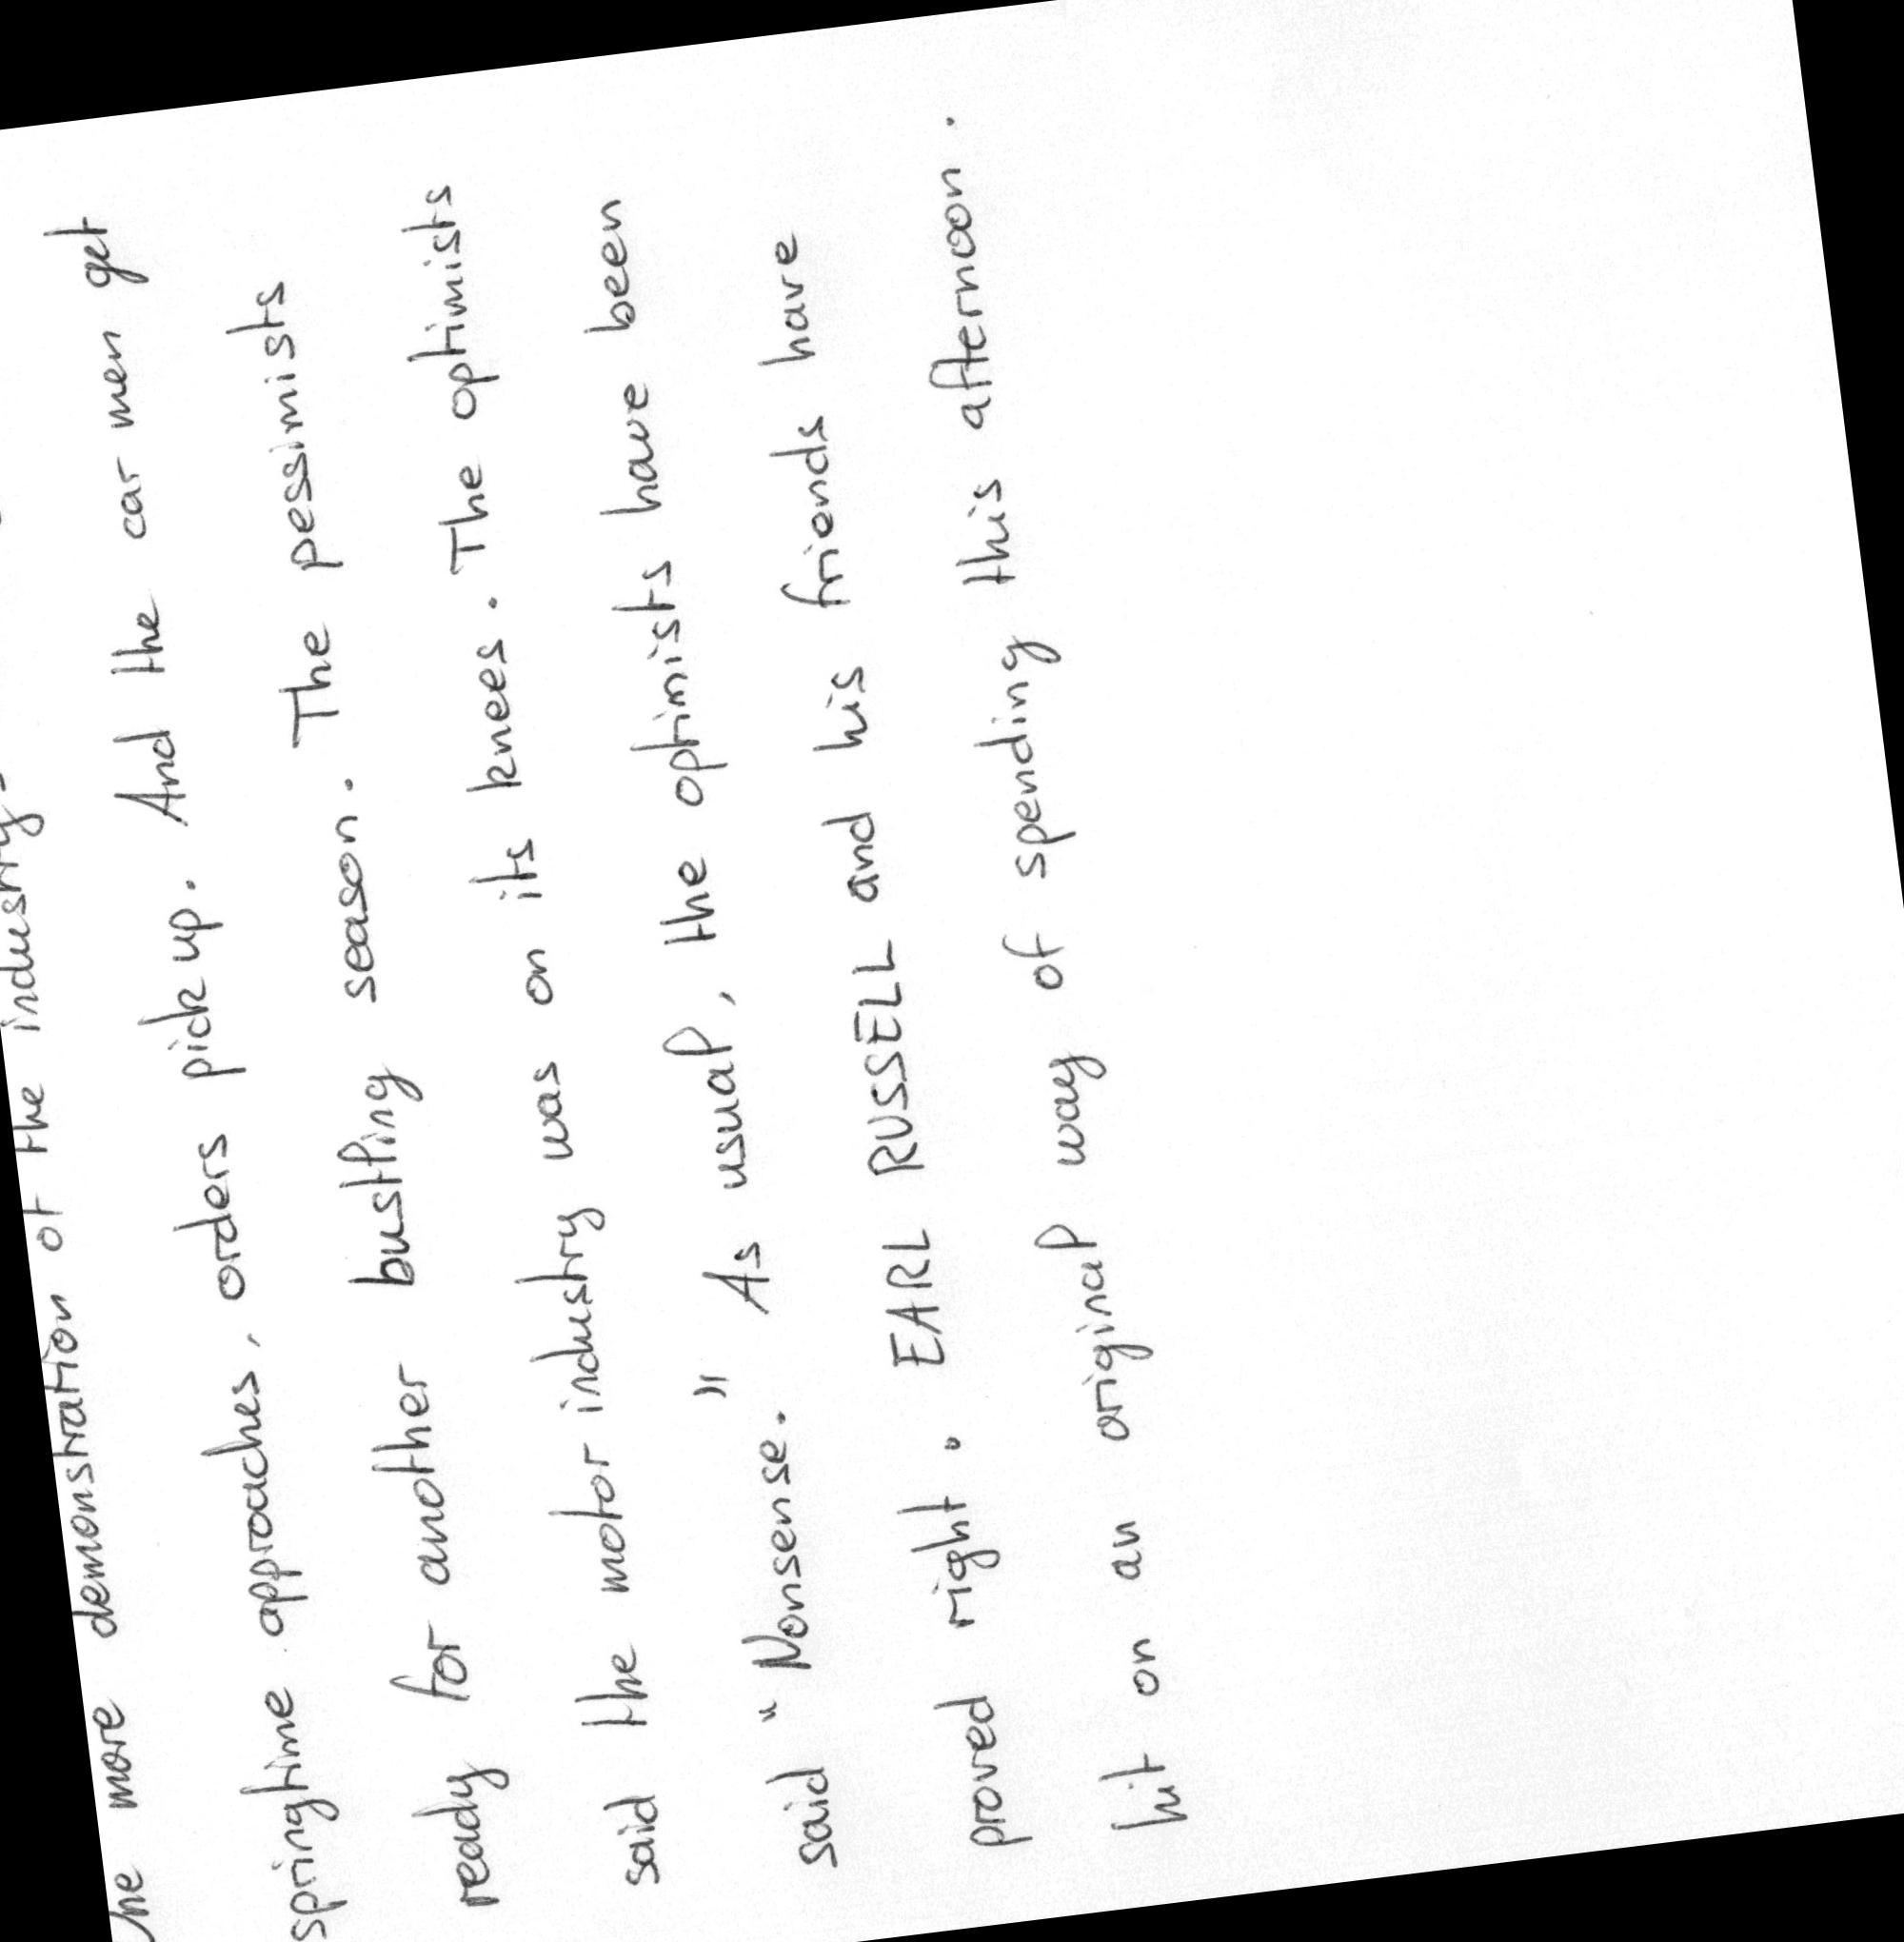 one more demonstration of the industry-
springtime approaches, orders pick up. And the car men get
ready for another bustling season. The pessimists
said the motor industry was on its knees. The optimists
said "Nonsense." As usual, the optimists have been
proved right. EARL RUSSELL and his friends have
hit on an original way of spending this afternoon.